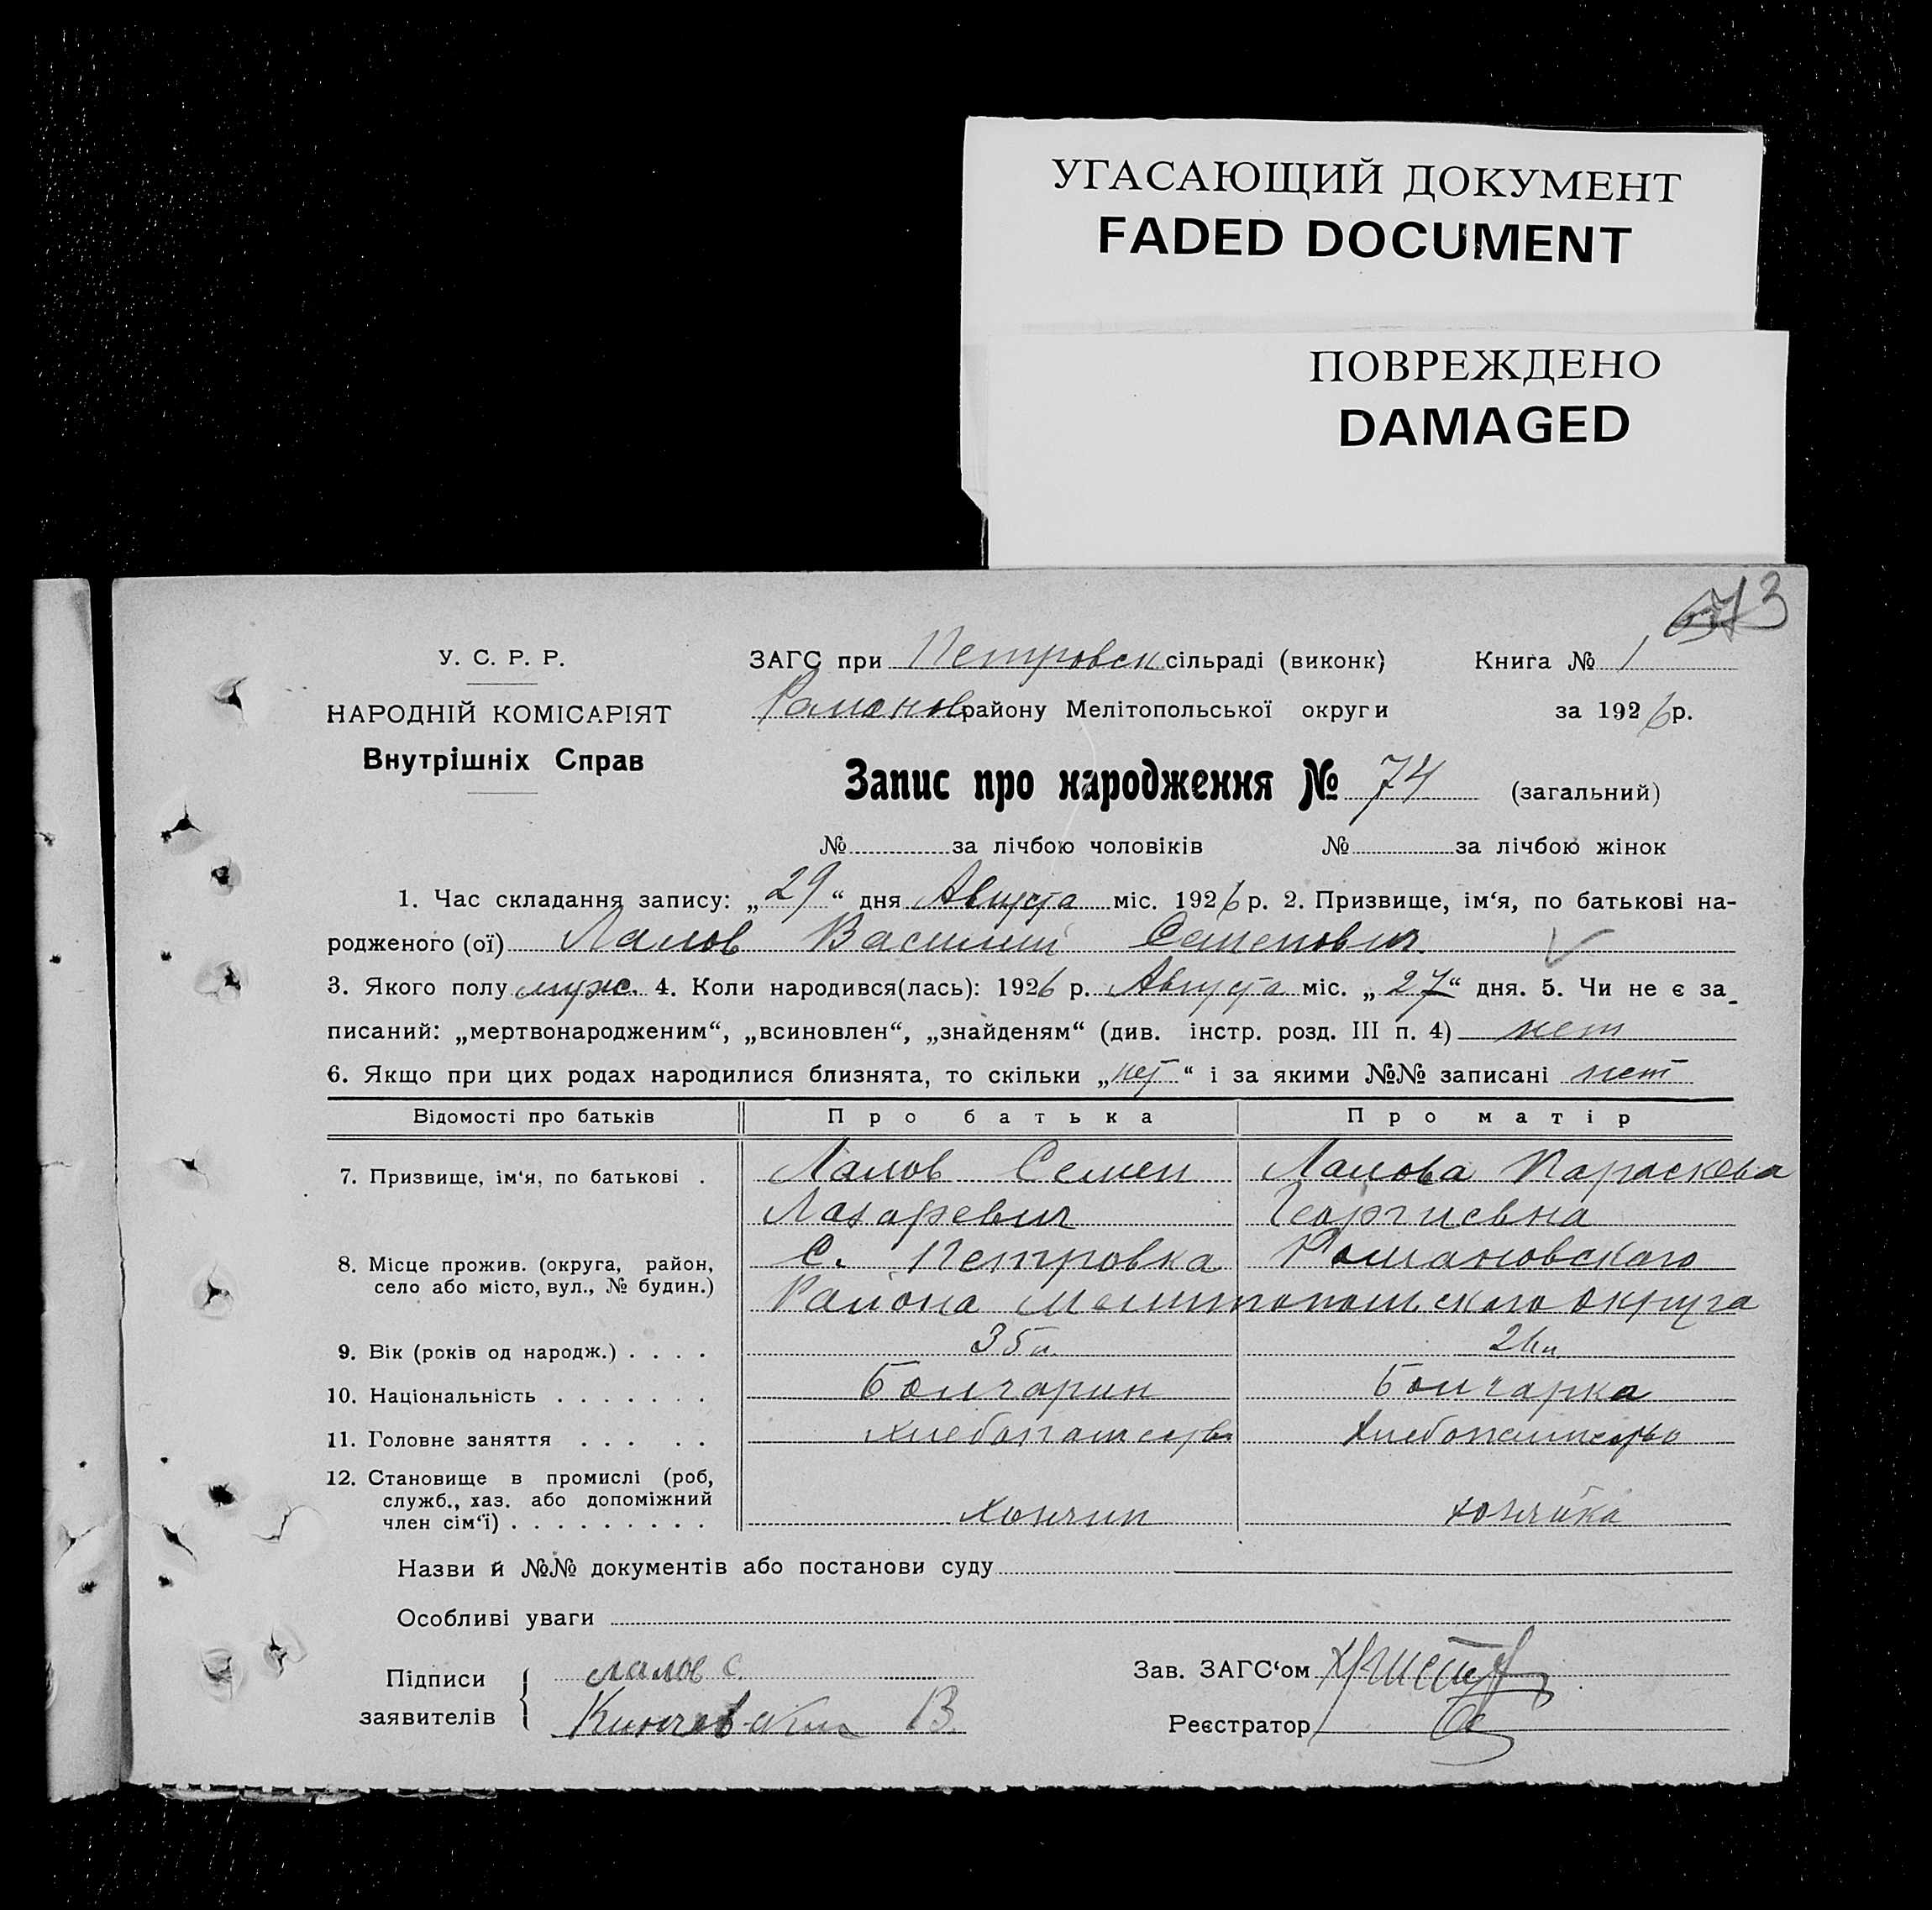 УГАСАЮЩИЙ ДОКУМЕНТ
FADED DOCUMENT
ПОВРЕЖДЕНО
DAMAGED
У. С. Р. Р.
НАРОДНІЙ КОМІСАРІЯТ
Внутрішніх Справ
ЗАГС при Петровск сільраді (виконк) Книга № 1
Романов району Мелітопольської округи за 1926 р.
Запис про народження № 74 (загальний)
№ за лічбою чоловіків № за лічбою жінок
1. Час складання запису: „29“ дня Августа міс. 1926 р. 2. Призвище, ім‘я, по батькові на-
родженого (ої) Лалов Василий Семенович
3. Якого полу муж. 4. Коли народився(лась): 1926 р. Августа міс. „27“ дня. 5. Чи не є за-
писаний: „мертвонародженим“, „всиновлен“, „знайденям“ (див. інстр. розд. III п. 4) нет
6. Якщо при цих родах народилися близнята, то скільки „нет“ і за якими №№ записані нет
Відомості про батьків Про батька Про матір
7. Призвище, ім‘я, по батькові . Лалов Семен Лалова Параскева
Лазаревич Георгиевна
8. Місце прожив. (округа, район, село або місто, вул., № будин.) С. Петровка Романовского
Района Мелитопольского округа
9. Вік (років од народж.) . . . . 35 л. 26 л.
10. Національність . . . . . . . Болгарин Болгарка
11. Головне заняття . . . . . Хлебопашество Хлебопашество
12. Становище в промислі (роб,
служб., хаз. або допоміжний
член сім‘ї) . . . . . . . . . Хозяин хозяйка
Назви й №№ документів або постанови суду
Особливі уваги
Підписи заявителів { Лалов С.
В.
Зав. ЗАГС‘ом
Реєстратор